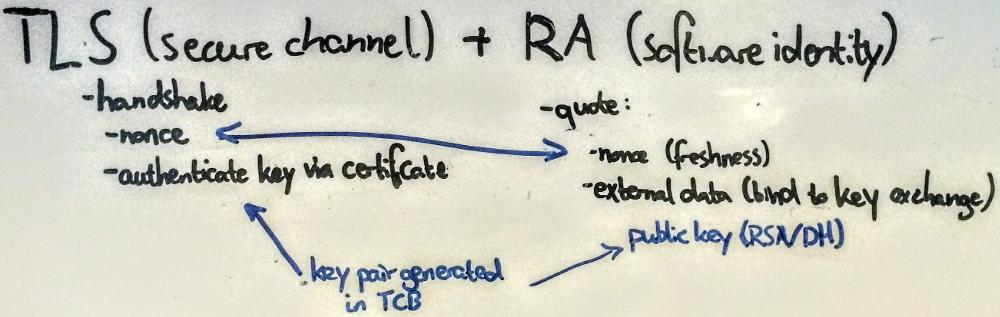 TLS (secure channel) + RA (software identity)
-handshake
-nonce
-authenticate key via certifcate
-quote:
-nonce (freshness)
-external data (bind to key exchange)
public key (RSA/DH)
key pair generated
in TCB